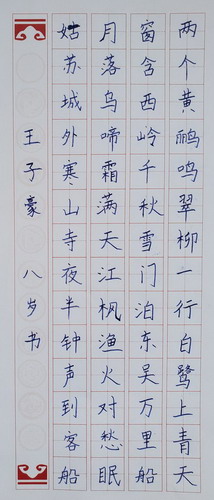 两个黄鹂鸣翠柳一行白鹭上青天
窗含西岭千秋雪门泊东吴万里船
月落乌啼霜满天江枫渔火对愁眠
姑苏城外寒山寺夜半钟声到客船
王子豪 八岁书